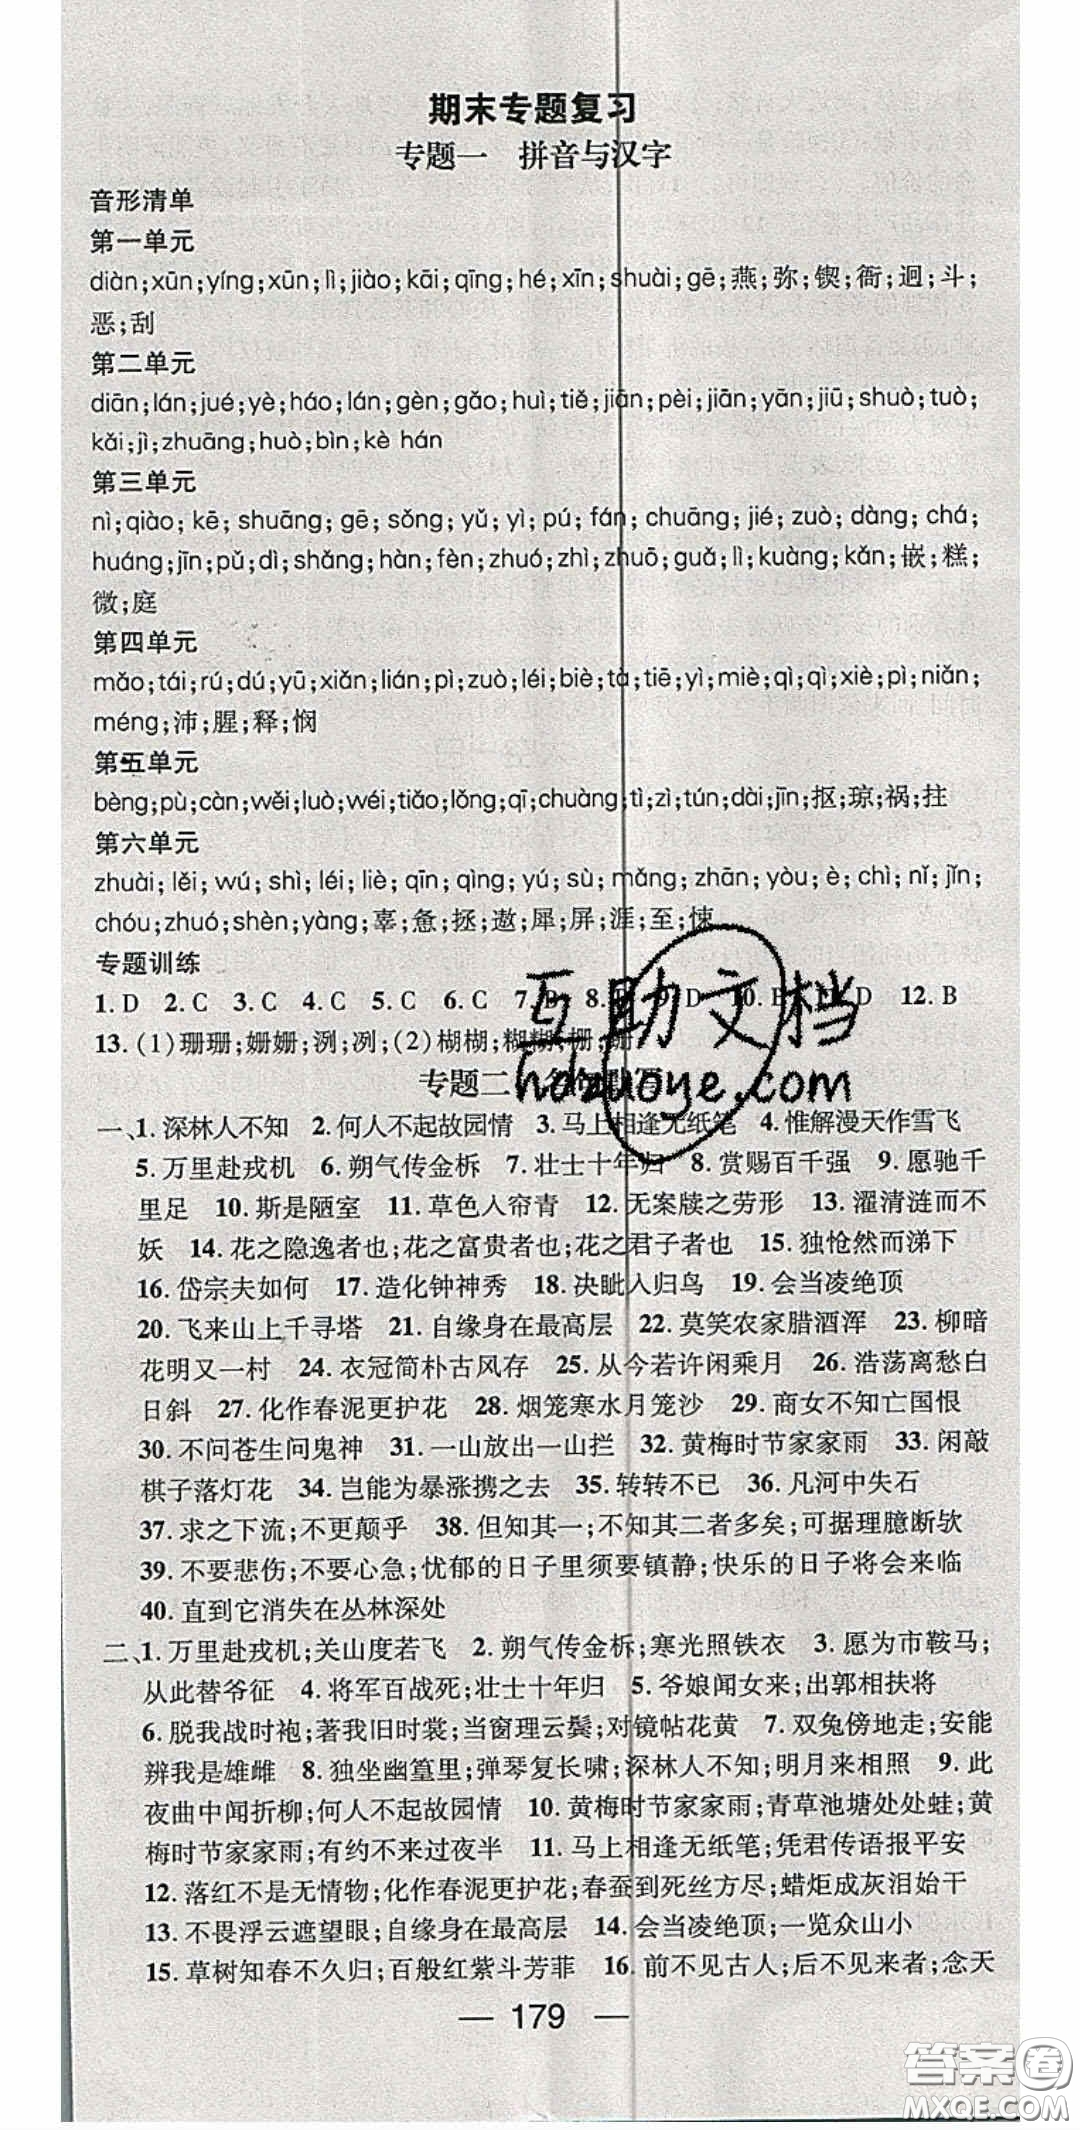 期末专题复习
专题一　拼音与汉字
音形清单
第一单元
diàn;xūn;yíng;xūn;lì;jiào;kāi;qīng;hé;xīn;shuài;gē;燕;弥;锲;衙;迥;斗;
恶;刮
第二单元
diān;lán;jué;yè;háo;lán;gèn;gǎo;huì;tiě;jiān;pèi;jiān;yān;jiū;shuò;tuò;
kǎi;jì;zhuāng;huò;bìn;kè hán
第三单元
nì;qiào;kē;shuāng;gē;sǒng;yǔ;yì;pú;fán;chuāng;jié;zuò;dàng;chá;
huáng;jīn;pǔ;dì;shǎng;hàn;fèn;zhuó;zhì;zhuō;guǎ;lì;kuàng;kǎn;嵌;糕;
微;庭
第四单元
mǎo;tái;rú;dú;yū;xiǎn;lián;pì;zuò;léi;biè;tà;tiē;yì;miè;qì;qì;xiè;pì;niǎn;
méng;沛;腥;释;悯
第五单元
bèng;pù;càn;wěi;luò;wéi;tiǎo;lǒng;qī;chuàng;tì;zì;tún;dài;jīn;抠;琼;祸;拄
第六单元
zhuài;lěi;wú;shì;léi;liè;qīn;qìng;yú;sù;mǎng;zhān;yòu;è;chì;nǐ;jǐn;
chóu;zhuó;shèn;yàng;辜;惫;拯;遨;犀;屏;涯;至;悚
专题训练
1. D　2. C　3. C　4. C　5. C　6. C　7. B　8.　9. D　10. B　11. D　12. B
13. (1)珊珊;姗姗;冽;洌;(2)楜楜;糊糊;珊;姗
专题二　名句默写
一、1. 深林人不知　2. 何人不起故园情　3. 马上相逢无纸笔　4. 惟解漫天作雪飞
5. 万里赴戎机　6. 朔气传金柝　7. 壮士十年归　8. 赏赐百千强　9. 愿驰千
里足　10. 斯是陋室　11. 草色入帘青　12. 无案牍之劳形　13. 濯清涟而不
妖　14. 花之隐逸者也;花之富贵者也;花之君子者也　15. 独怆然而涕下
16. 岱宗夫如何　17. 造化钟神秀　18. 决眦入归鸟　19. 会当凌绝顶
20. 飞来山上千寻塔　21. 自缘身在最高层　22. 莫笑农家腊酒浑　23. 柳暗
花明又一村　24. 衣冠简朴古风存　25. 从今若许闲乘月　26. 浩荡离愁白
日斜　27. 化作春泥更护花　28. 烟笼寒水月笼沙　29. 商女不知亡国恨
30. 不问苍生问鬼神　31. 一山放出一山拦　32. 黄梅时节家家雨　33. 闲敲
棋子落灯花　34. 岂能为暴涨携之去　35. 转转不已　36. 凡河中失石
37. 求之下流;不更颠乎　38. 但知其一;不知其二者多矣;可据理臆断欤
39. 不要悲伤;不要心急;忧郁的日子里须要镇静;快乐的日子将会来临
40. 直到它消失在丛林深处
二、1. 万里赴戎机;关山度若飞　2. 朔气传金柝;寒光照铁衣　3. 愿为市鞍马;
从此替爷征　4. 将军百战死;壮士十年归　5. 爷娘闻女来;出郭相扶将
6. 脱我战时袍;著我旧时裳;当窗理云鬓;对镜帖花黄　7. 双兔傍地走;安能
辨我是雄雌　8. 独坐幽篁里;弹琴复长啸;深林人不知;明月来相照　9. 此
夜曲中闻折柳;何人不起故园情　10. 黄梅时节家家雨;青草池塘处处蛙;黄
梅时节家家雨;有约不来过夜半　11. 马上相逢无纸笔;凭君传语报平安
12. 落红不是无情物;化作春泥更护花;春蚕到死丝方尽;蜡炬成灰泪始干
13. 不畏浮云遮望眼;自缘身在最高层　14. 会当凌绝顶;一览众山小
15. 草树知春不久归;百般红紫斗芳菲　16. 前不见古人;后不见来者;念天
— 179 —
互助文档
hdzuoye.com
答案圈
MXQE.COM